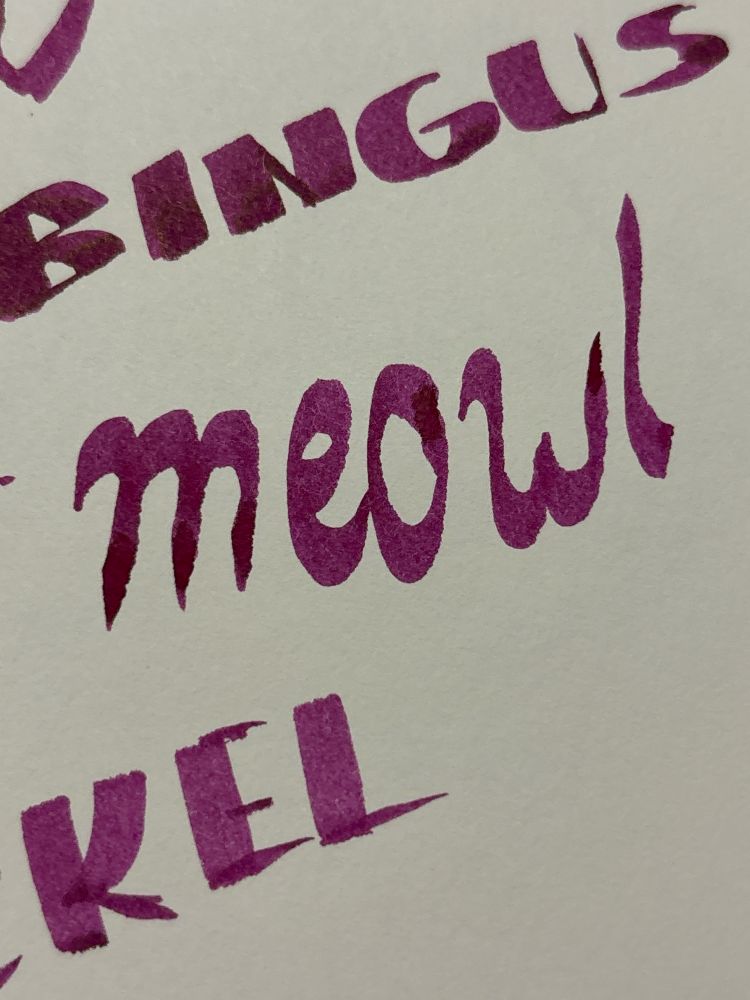 BINGUS
meowl
KEL